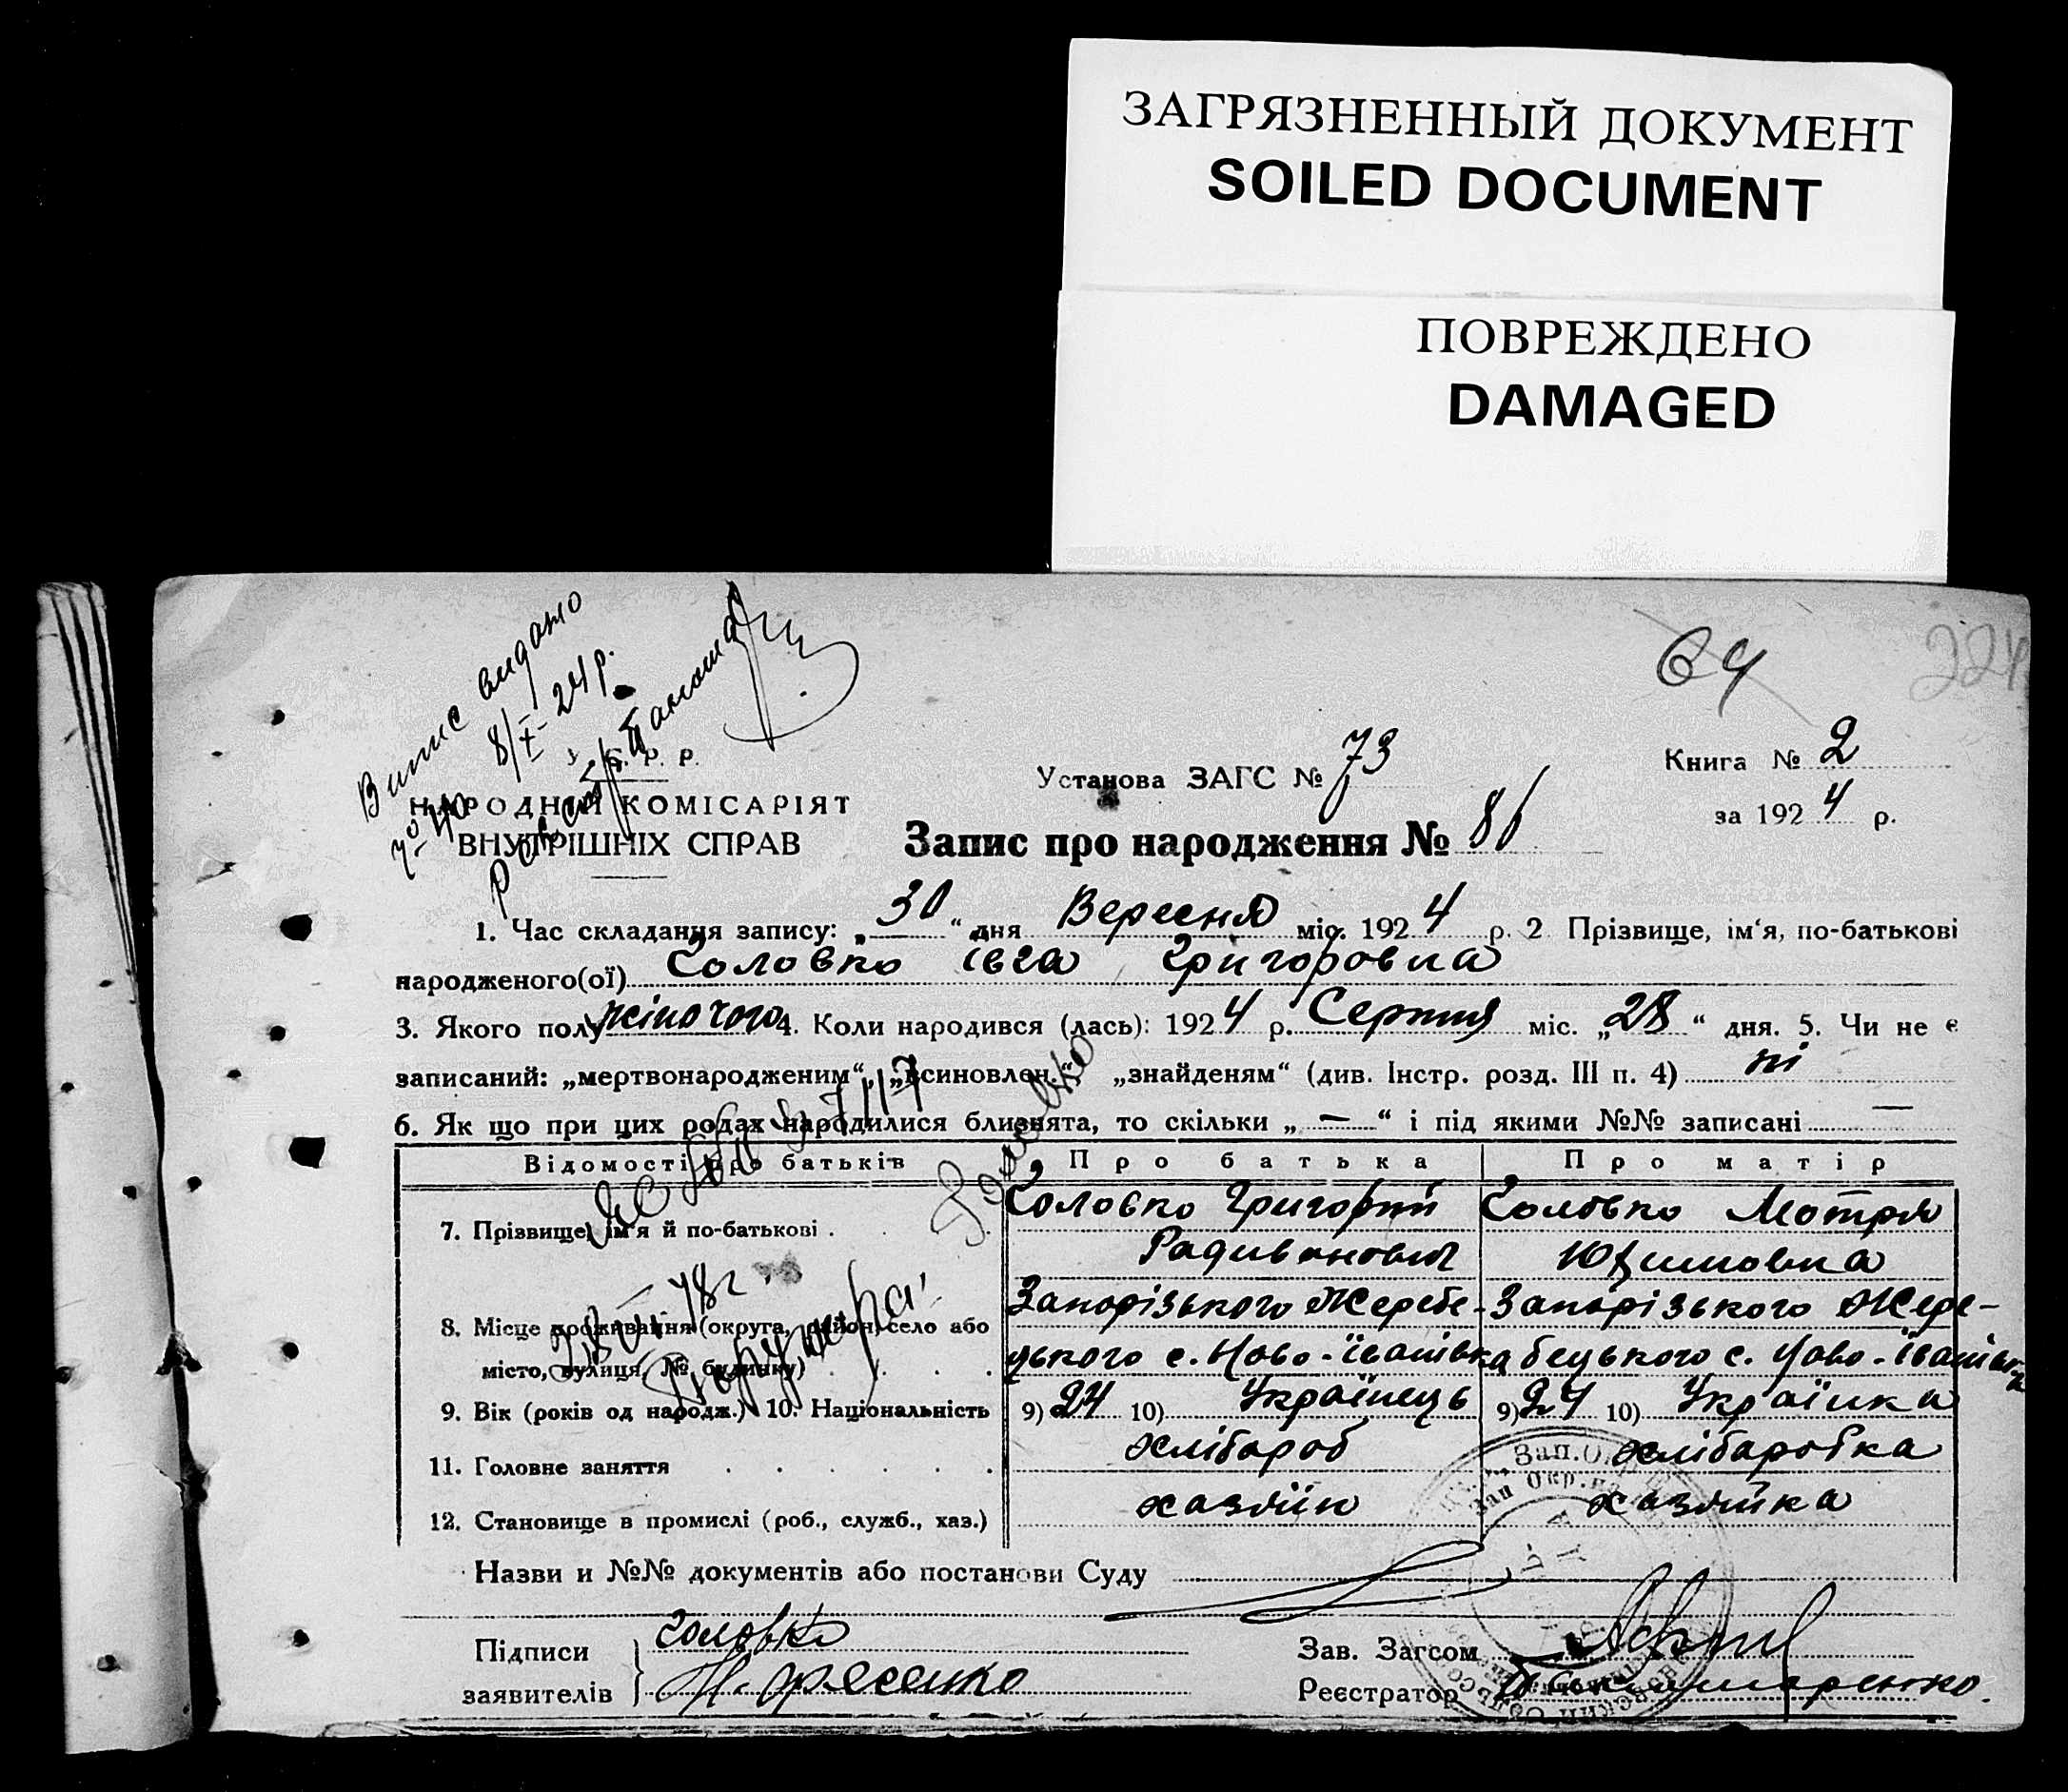 ЗАГРЯЗНЕННЫЙ ДОКУМЕНТ
SOILED DOCUMENT
ПОВРЕЖДЕНО
DAMAGED
64
224
Випис видано
8/X-24р.
У. С. Р. Р.
НАРОДНІЙ КОМІСАРІЯТ
ВНУТРІШНІХ СПРАВ
Установа ЗАГС № 73
Книга № 2
за 1924 р.
Запис про народження № 81
1. Час складання запису: „30“ дня Вересня міс. 1924 р. 2 Прізвище, ім‘я, по-батькові
народженого(ої) Соловко Івга Григоровна
3. Якого полу жіночого 4. Коли народився (лась): 1924 р. Серпня міс. „28“ дня. 5. Чи не є
записаний: „мертвонародженим“, „всиновлен.“, „знайденям“ (див. Інстр. розд. III п. 4) ні
6. Як що при цих родах народилися близнята, то скільки „—“ і під якими №№ записані —
Відомості про батьків Про батька Про матір
7. Прізвище, ім‘я й по-батькові . Соловко Григорий Соловко Мотря
Радивонович Юхимовна
8. Місце проживання (округа, район, село або Запорізького Жеребе- Запорізького Жере-
місто, вулиця, № будинку) . . . . цького с. Ново-Іванівка бецького с. Ново-Іванівка
9. Вік (років од народж.) 10. Національність 9) 24 10) Українець 9) 24 10) Українка
11. Головне заняття . . . . . . хлібароб хлібаробка
12. Становище в промислі (роб., служб., хаз.) хазяїн хазяйка
Назви и №№ документів або постанови Суду
Підписи Соловко Зав. Загсом
заявителів Реєстратор